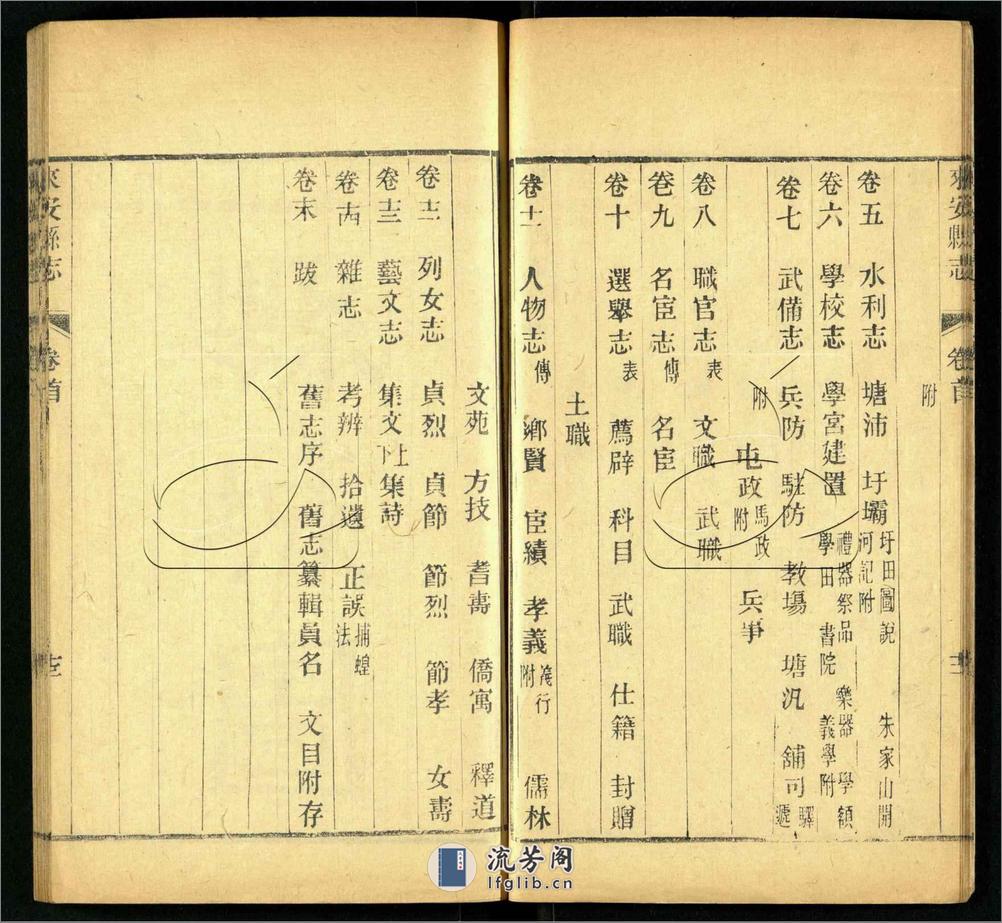 來安縣志
卷首
附
卷五 水利志 塘沛 圩壩 圩田圖說 朱家山開
河記附
卷六 學校志 學宮建置 禮器祭品 樂器 學額
學田 書院 義學附
卷七 武備志 兵防 駐防 教場 塘汛 舖司 驛
遞
附 屯政 馬政
附 兵事
卷八 職官志表 文職 武職
卷九 名宦志傳 名宦
卷十 選舉志表 薦辟 科目 武職 仕籍 封贈
土職
卷十一 人物志傳 鄉賢 宦績 孝義 篤行
附 儒林
文苑 方技 耆壽 僑寓 釋道
卷十二 列女志 貞烈 貞節 節烈 節孝 女壽
卷十三 藝文志 集文上下 集詩
卷十四 雜志 考辨 拾遺 正誤 捕蝗
法
卷末 跋 舊志序 舊志纂輯員名 文目附存
來安縣志
卷首
十三
流芳阁
lfglib.cn